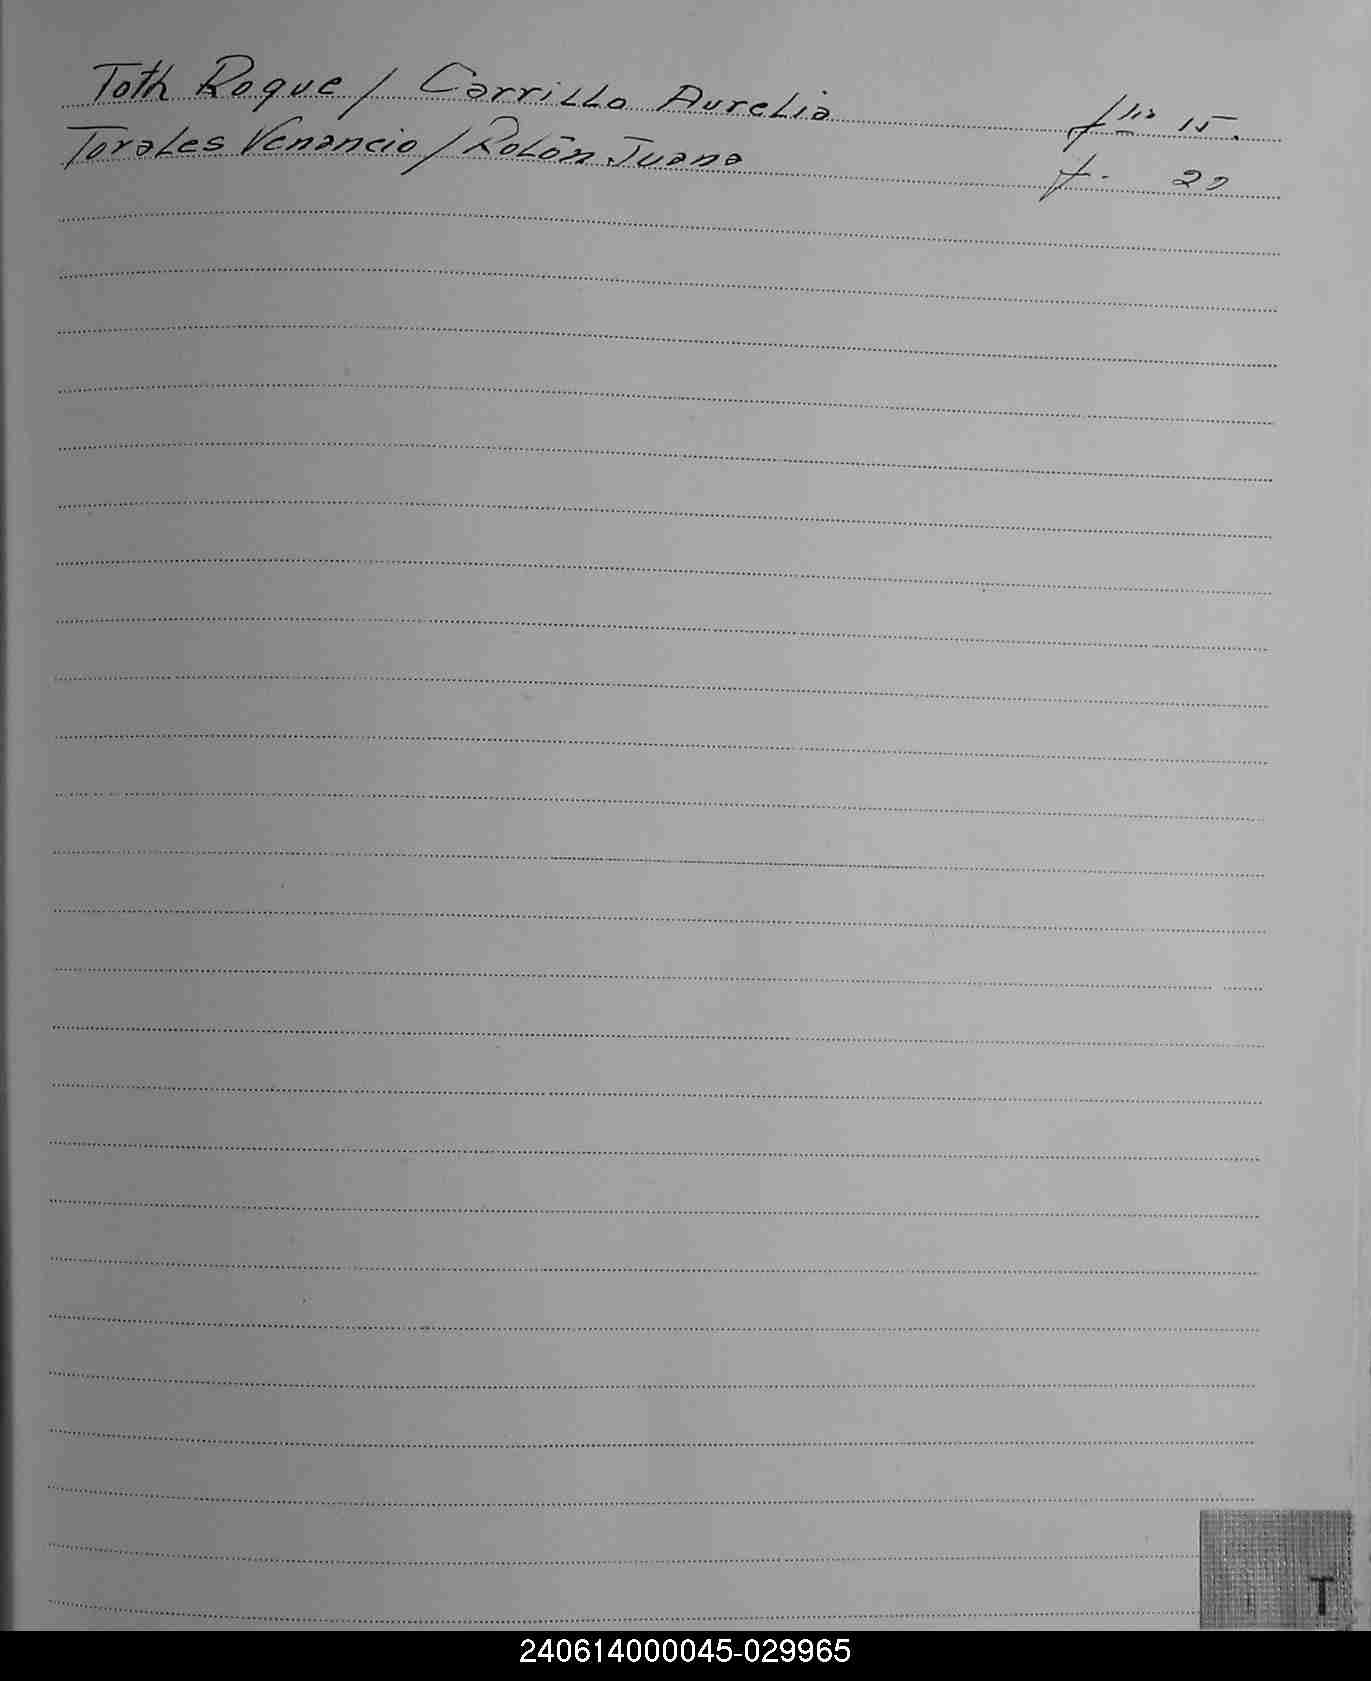 Toth Roque / Carrillo Aurelia flio 15.
Torales Venancio / Rolón Juana f. 29
T
240614000045-029965